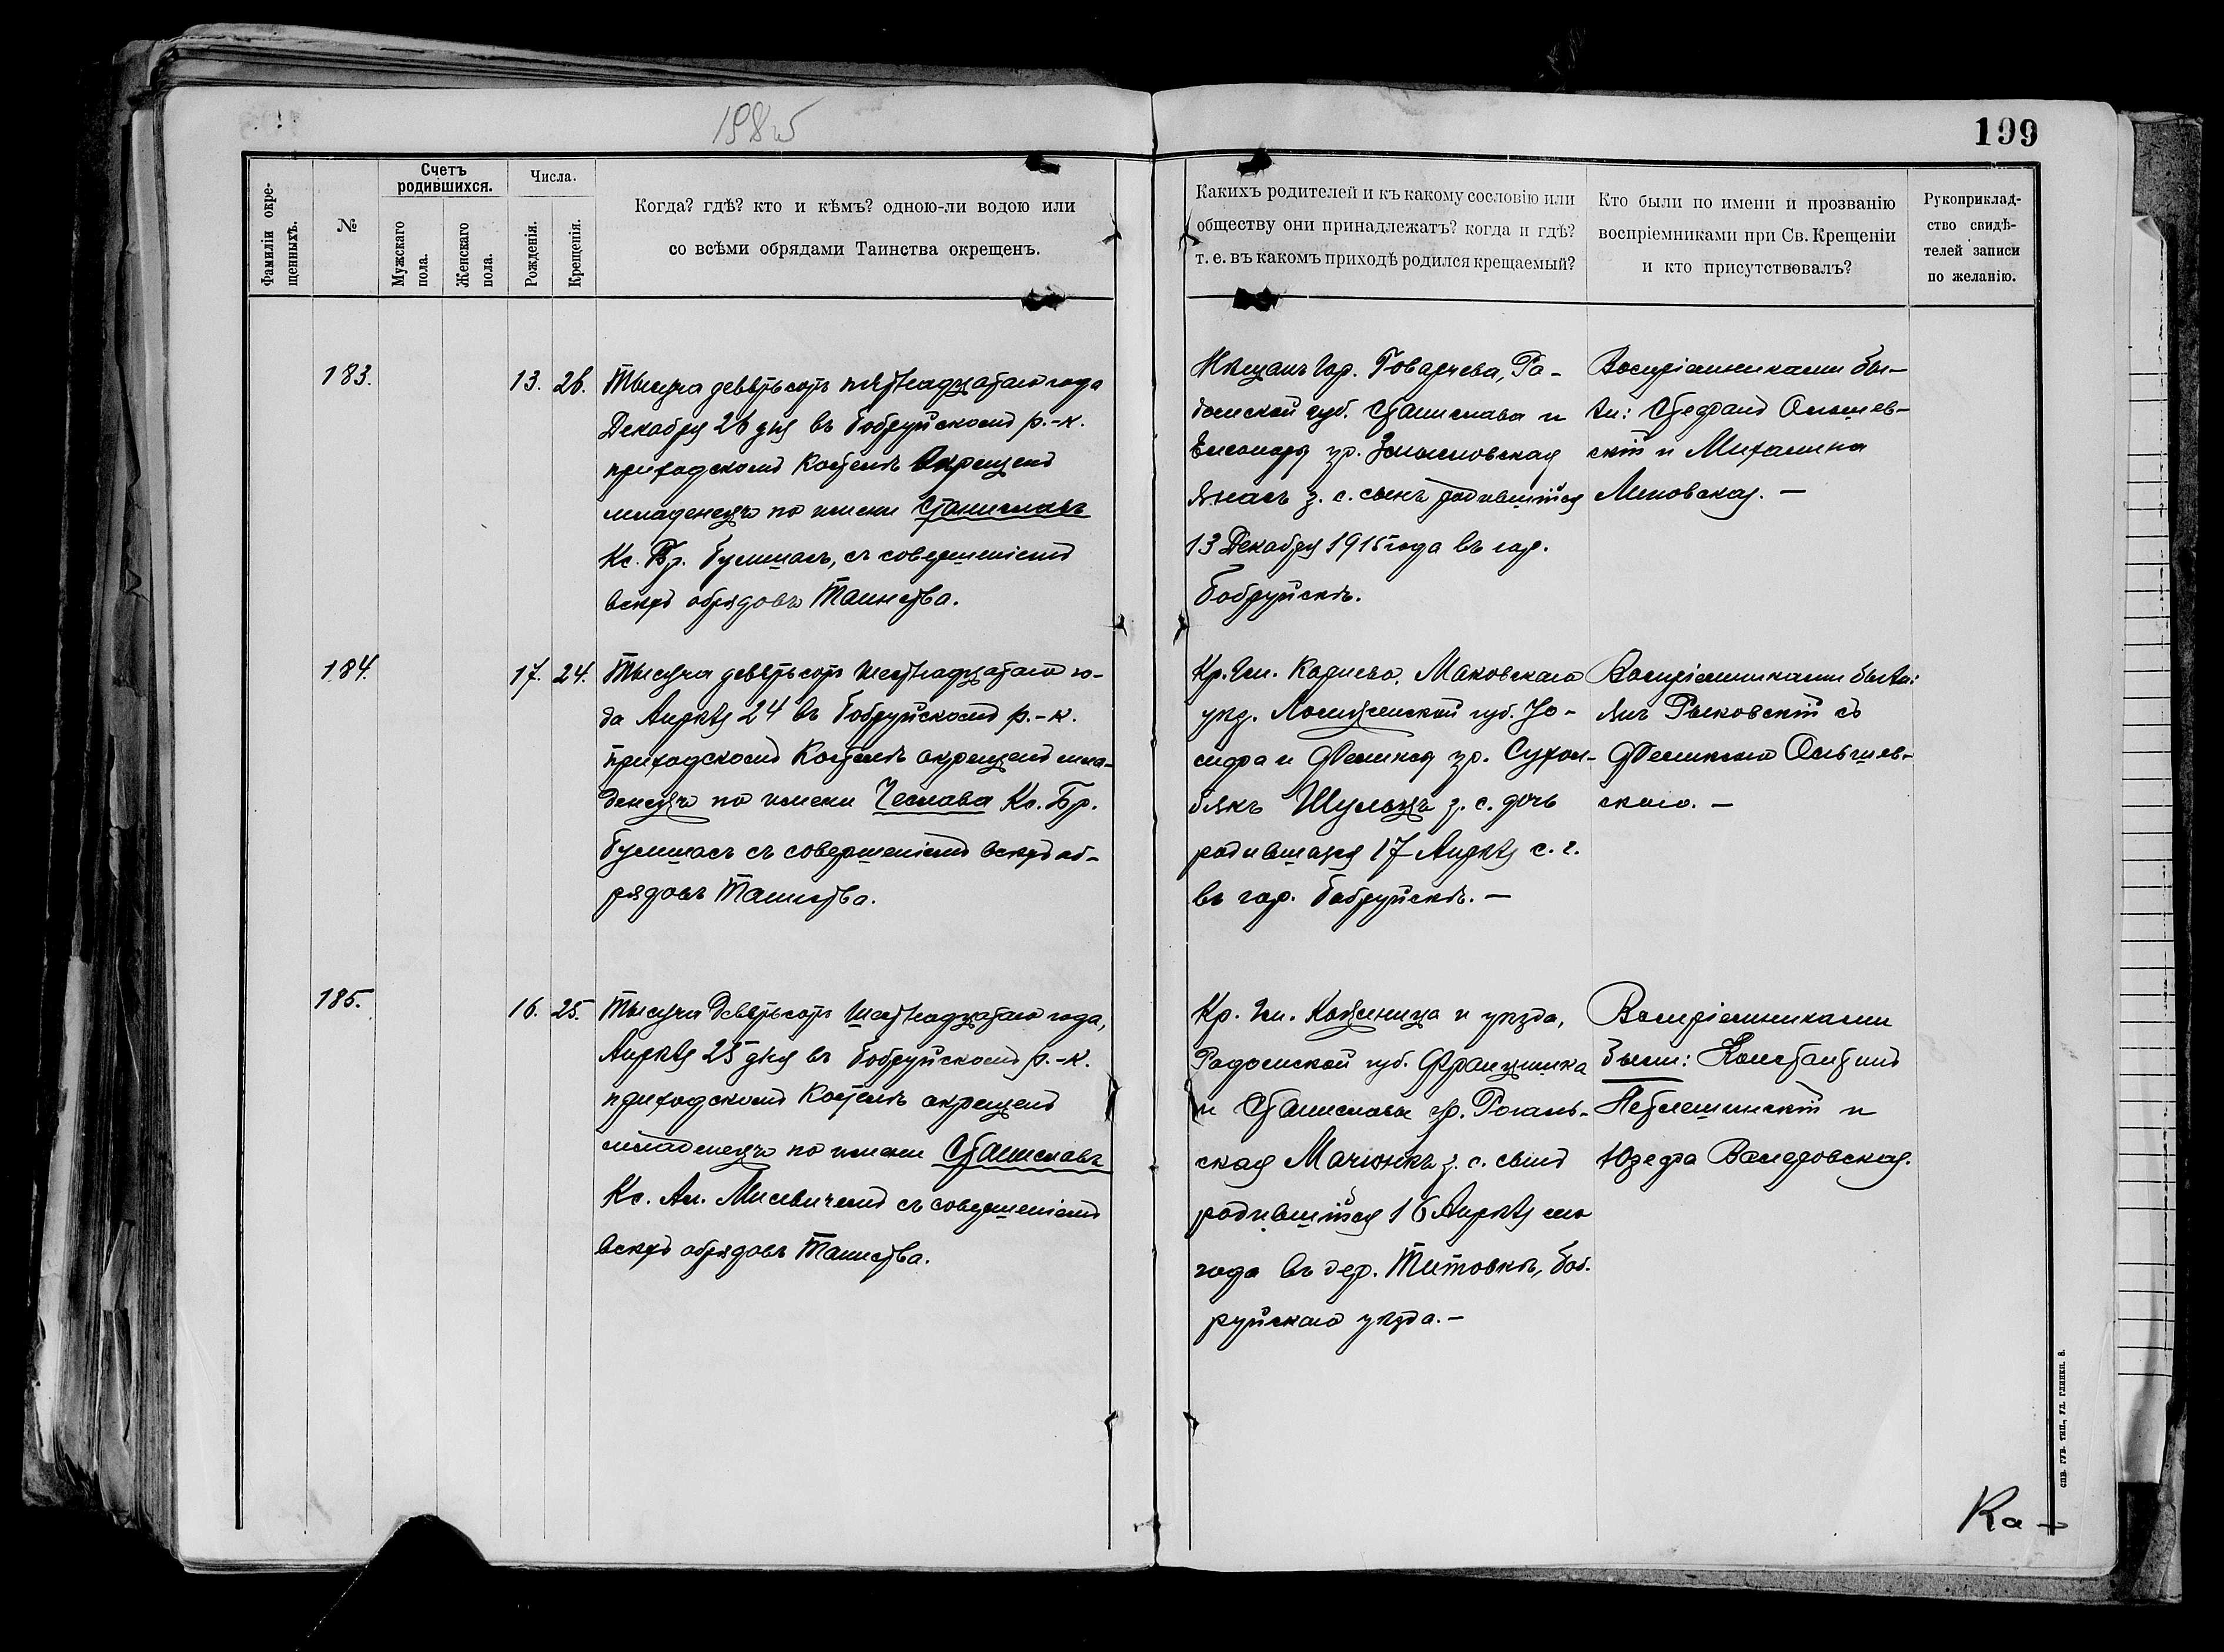 198 об
199
Фамиліи окре-
щенныхъ.
№
Счетъ
родившихся.
Мужскаго
пола.
Женскаго
пола.
Числа.
Рожденія.
Крещенія.
Когда? гдѣ? кто и кѣмъ? одною-ли водою или
со всѣми обрядами Таинства окрещенъ.
Какихъ родителей и къ какому сословію или
обществу они принадлежатъ? когда и гдѣ?
т. е. въ какомъ приходѣ родился крещаемый?
Кто были по имени и прозванію
воспріемниками при Св. Крещеніи
и кто присутствовалъ?
Рукоприклад-
ство свидѣ-
телей записи
по желанію.
183.
13. 26.
Тысяча девятьсотъ пятнадцатаго года
Декабря 26 дня въ Бобруйскомъ р.-к.
приходскомъ Костелѣ окрещенъ
младенецъ по имени Станиславъ
Кс. Бр. Бумшасъ, съ совершеніемъ
всѣхъ обрядовъ Таинства.
Мѣщанъ гор. Говарчева, Ра-
домской губ. Станислава и
ур.
з. с. сынъ родившійся
13 Декабря 1915 года въ гор.
Бобруйскѣ.
Воспріемниками бы-
ли: Стефанъ Ольшев-
скій и Михалина
Линовская. —
184.
17. 24.
Тысяча девятьсотъ шестнадцатаго го-
да Апрѣля 24 въ Бобруйскомъ р.-к.
приходскомъ Костелѣ окрещенъ мла-
денецъ по имени Чеслава Кс. Бр.
Бумшасъ съ совершеніемъ всѣхъ об-
рядовъ Таинства.
Кр. гм. Маковскаго
уѣз. Ломжинской губ. Іо-
сифа и Феликса ур. Сухол-
бякъ Шульцъ з. с. дочь
родившаяся 17 Апрѣля с. г.
въ гор. Бобруйскѣ. —
Воспріемниками были:
Янъ Рыковскій съ
Феликсою Ольшев-
скою. —
185.
16. 25.
Тысяча девятьсотъ шестнадцатаго года,
Апрѣля 25 дня въ Бобруйскомъ р.-к.
приходскомъ Костелѣ окрещенъ
младенецъ по имени Станиславъ
Кс. Ал. Мисевичемъ съ совершеніемъ
всѣхъ обрядовъ Таинства.
Кр. гм. Козеница и уѣзда,
Радомской губ. Францишка
и Станиславы ур. Рогаль-
ская Мачіонжъ з. с. сынъ
родившійся 16 Апрѣля сего
года въ дер. Титовкѣ, Боб-
руйскаго уѣзда. —
Воспріемниками
были: Константинъ
и
Юзефа
Ка-
СПБ. ГУБ. ТИП., УЛ. ГЛИНКИ. 8.